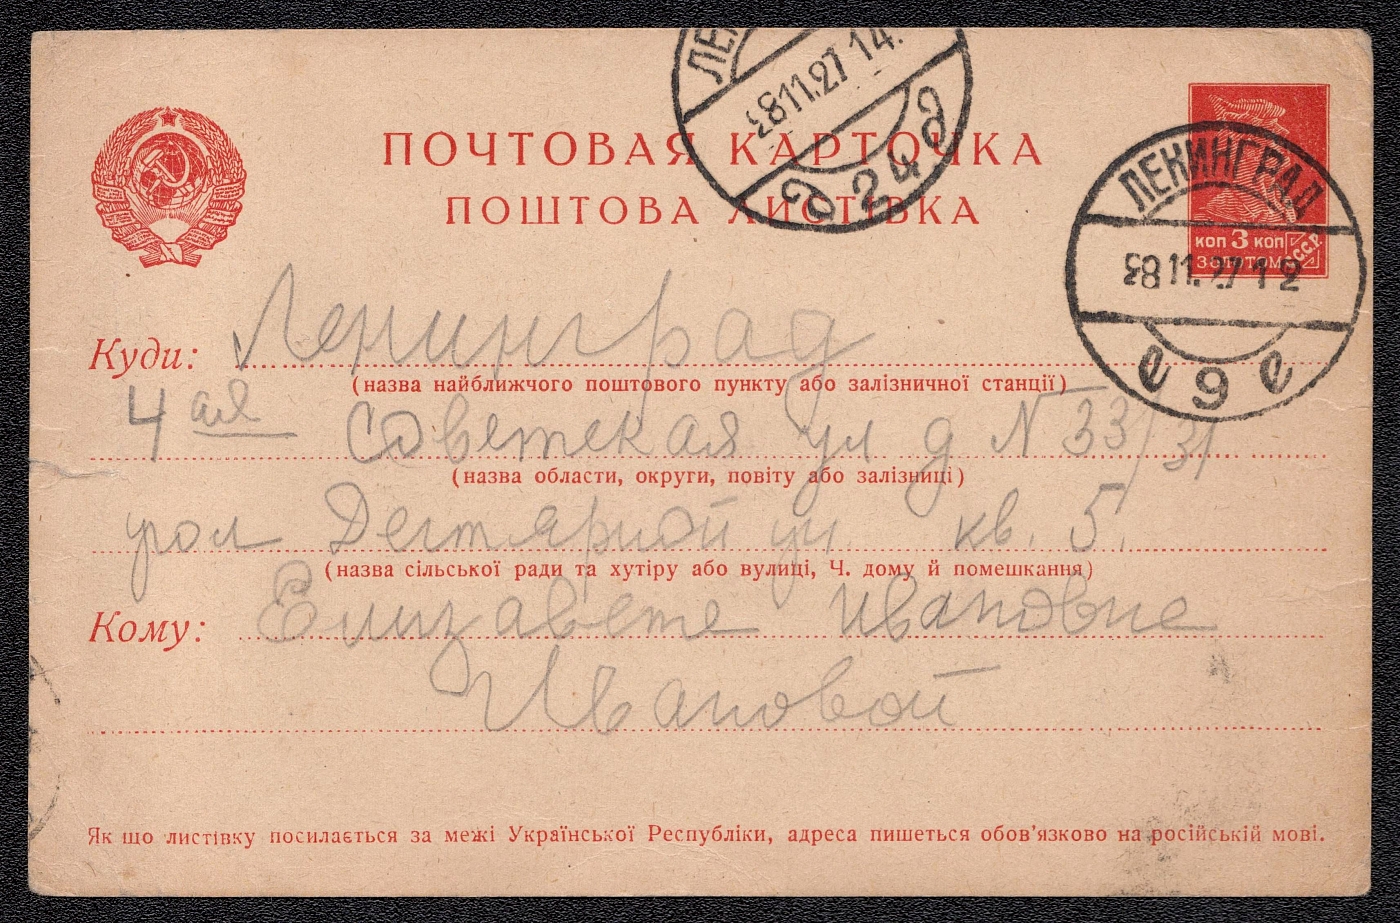 ПОЧТОВАЯ КАРТОЧКА
ПОШТОВА ЛИСТІВКА
28 11.27 14.
24
ЛЕНИНГРАД
28 11.27 12
е 9 е
КОП 3 КОП
Куди: Ленинград
(назва найближчого поштового пункту або залізничної станції)
4 ая Советская ул д N 33/31
(назва области, округи, повіту або залізниці)
угол Дегтярной ул кв. 5.
(назва сільської ради та хутіру або вулиці, Ч. дому й помешкання)
Кому: Елизавете Ивановне
Ивановой
Як що листівку посилається за межі Української Республіки, адреса пишеться обов'язково на російській мові.